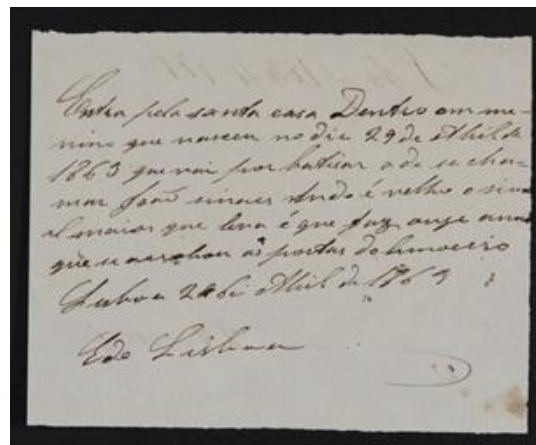 Entra pela santa casa Dentro om me-
nino que nasceu no dia 29 de Abhil de
1863 que vai por batisar a de se cha-
mar Joaõ sinaes tudo é velho o sin
al maior que leva é que faz onze annos
que se acabou as portas do limoeiro
Lisboa 29 de Abhil de 1863
E de Lisboa